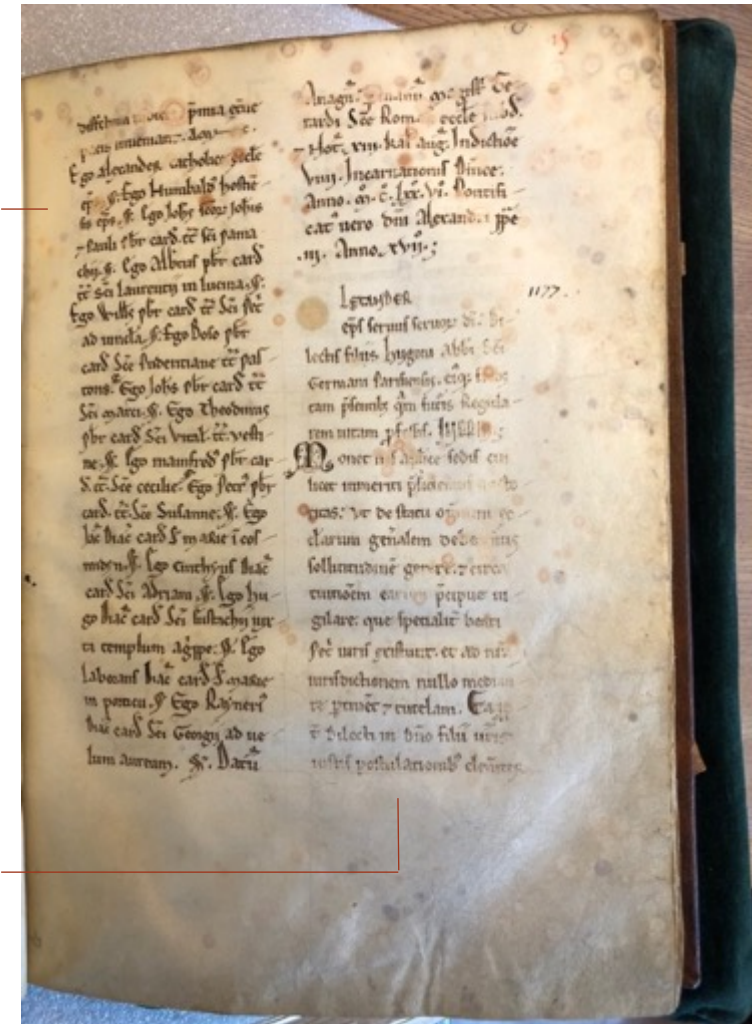 15
districti iudic̄ p̄mia et̄ne
pacis inueniant. Am
Ego alexander catholice eccl̄e
ep̄s. ss. Ego Humbald' hostiē
sis ep̄s. ss. Ego Joh̄s sc̄oꝝ Joh̄is
⁊ Pauli p̄br card. tt̄ sc̄i pama
chii. ss. Ego Albtus p̄br card
tt̄ Sc̄i Laurentii in lucina. ss.
Ego Will̄s p̄br card tt̄ Sc̄i Pet̄
ad uincl̄a. ss. Ego Boso p̄br
card Sc̄e Pudentiane tt̄ pas
toris. Ego Joh̄s p̄br card tt̄
Sc̄i marci. ss. Ego Theodinus
p̄br card Sc̄i Vital̄. tt̄. vesti
ne. ss. Ego mainfred' p̄br car
d. tt̄. Sc̄e cecilie. Ego Petr' p̄br
card. tt̄. Sc̄e Susanne. ss. Ego
Iac̄ diac̄ card S̄ marie ī cos
miden. ss. Ego cinthyus diac̄
card Sc̄i Adriani. ss. Ego hu
go diac̄ card Sc̄i Eustachii iux
ta templum ag̀ppe. ss. Ego
laborans diac̄ card S̄ marie
in porticu. ss. Ego Rayneri'
diac̄ card Sc̄i Georgii ad ue
lum aureum. ss. Datū
Anagn̄. p̄ manū Ge
rardi Sc̄e Rom̄ eccl̄e
Not̄. xiii. kal aug. Indictiōe
Viiii. Incarnationis dn̄ice.
Anno. m̊. c̊. lxx. vi̊. Pontifi
cat' uero dn̄i Alexandri pp̄e
.iii. Anno. xvii.;
1177.
LEXANDER
ep̄s seruus seruoꝝ di. di
lectis filiis hugoni abb̄i Sc̄i
Germani Parisiensis. eiq; fr̄ibus
tam p̄sentib; q̄m futuris Regula
rem uitam p̄fessis.
Monet nos ap̄lice sedis cui
licet inmeriti p̄sidem'
ritas. vt de statu omnium ec
clarum gen̄alem debeamus
sollicitudinē gerere. ⁊ circa
tuitionem earum p̄cipue ui
gilare. que specialit̄ beati
Pet̄ iuris existunt. et ad nr̄am
iurisdictionem nullo median
te p̄tinēt ⁊ tutelam. Eap
ꝓ dilecti in dn̄o filii uris
iustis postulationib; clement̄